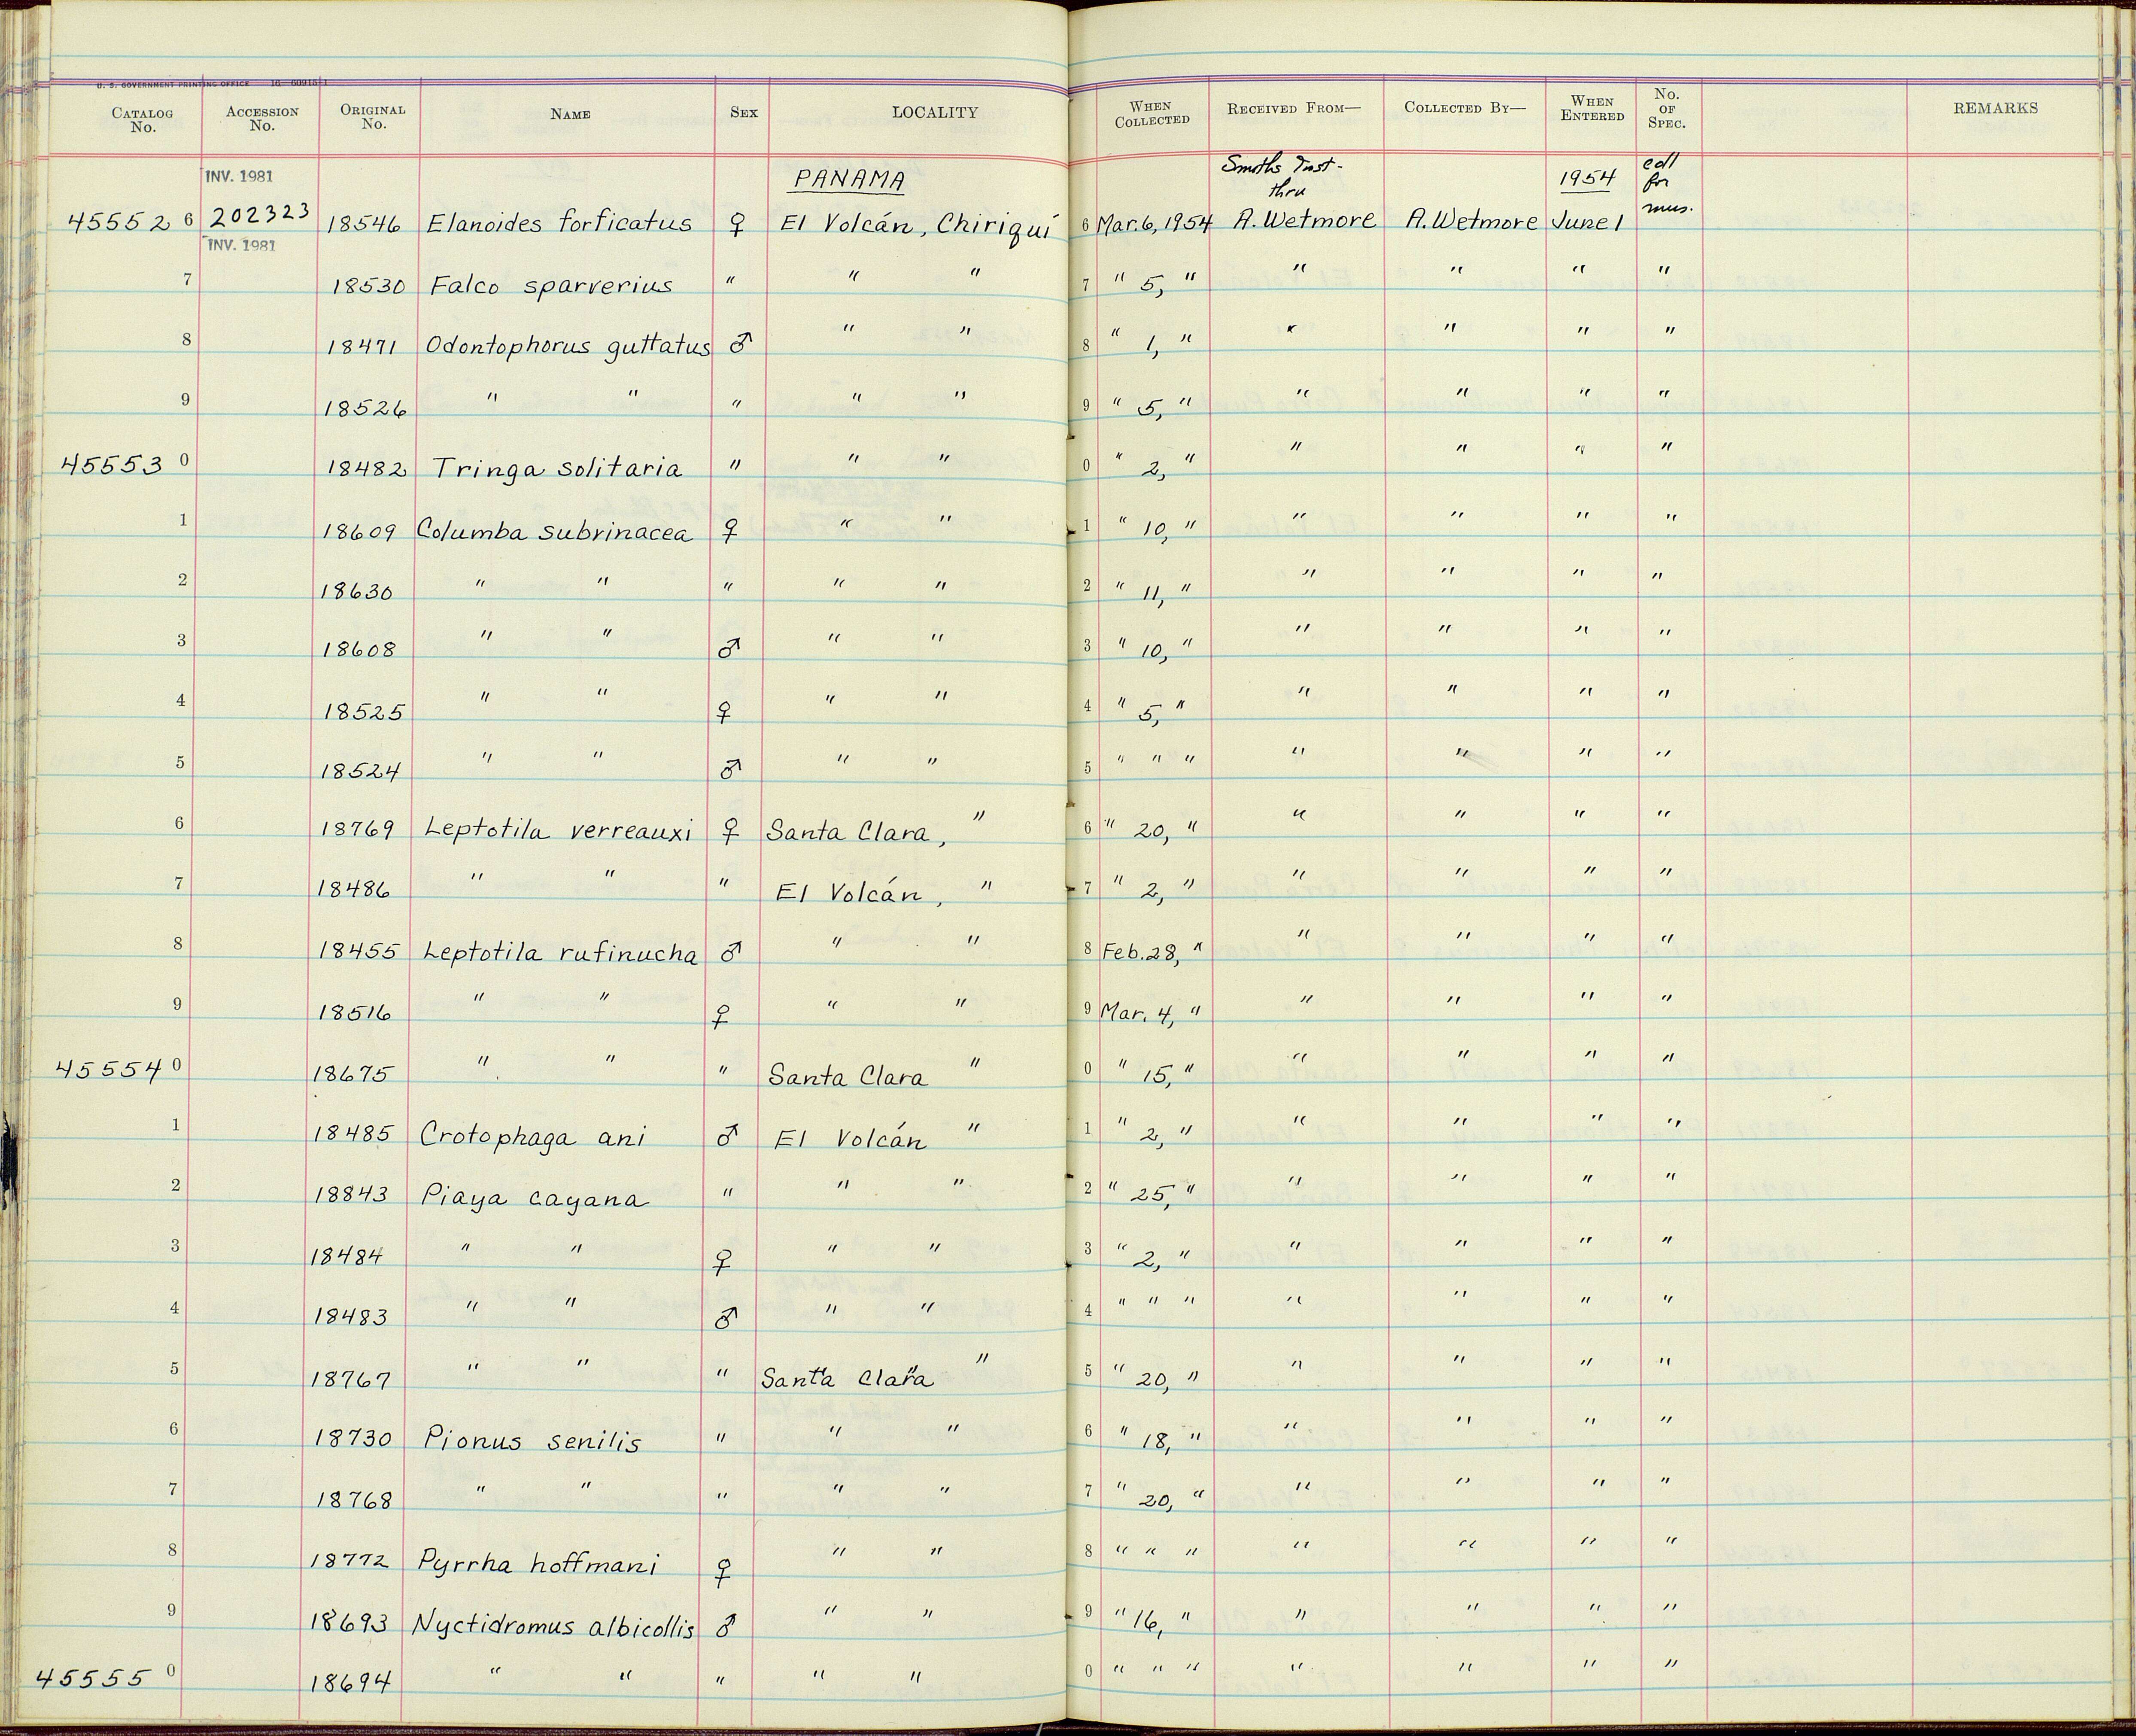 U. S. GOVERNMENT PRINTING OFFICE 16—60915-1
CATALOG No. ACCESSION No. ORIGINAL No. NAME SEX LOCALITY WHEN COLLECTED RECEIVED FROM— COLLECTED BY— WHEN ENTERED No. OF SPEC. REMARKS
INV. 1981 PANAMA Smiths Inst- thru 1954 coll for mus.
45552 6 202323 18546 Elanoides forficatus ♀ El Volcán, Chiriquí 6 Mar. 6, 1954 A. Wetmore A. Wetmore June 1
INV. 1981
7 18530 Falco sparverius " " " 7 " 5, " " " " "
8 18471 Odontophorus guttatus ♂ " " 8 " 1, " " " " "
9 18526 " " " " " 9 " 5, " " " " "
45553 0 18482 Tringa solitaria " " " 0 " 2, " " " " "
1 18609 Columba subvinacea ♀ " " 1 " 10, " " " " "
2 18630 " " " " " 2 " 11, " " " " "
3 18608 " " ♂ " " 3 " 10, " " " " "
4 18525 " " ♀ " " 4 " 5, " " " " "
5 18524 " " ♂ " " 5 " " " " " " "
6 18769 Leptotila verreauxi ♀ Santa Clara, " 6 " 20, " " " " "
7 18486 " " " El Volcán, " 7 " 2, " " " " "
8 18455 Leptotila rufinucha ♂ " " 8 Feb. 28, " " " " "
9 18516 " " ♀ " " 9 Mar. 4, " " " " "
45554 0 18675 " " " Santa Clara " 0 " 15, " " " " "
1 18485 Crotophaga ani ♂ El Volcán " 1 " 2, " " " " "
2 18843 Piaya cayana " " " 2 " 25, " " " " "
3 18484 " " ♀ " " 3 " 2, " " " " "
4 18483 " " ♂ " " 4 " " " " " " "
5 18767 " " " Santa Clara " 5 " 20, " " " " "
6 18730 Pionus senilis " " " 6 " 18, " " " " "
7 18768 " " " " " 7 " 20, " " " " "
8 18772 Pyrrha hoffmani ♀ " " 8 " " " " " " "
9 18693 Nyctidromus albicollis ♂ " " 9 " 16, " " " " "
45555 0 18694 " " " " " 0 " " " " " " "